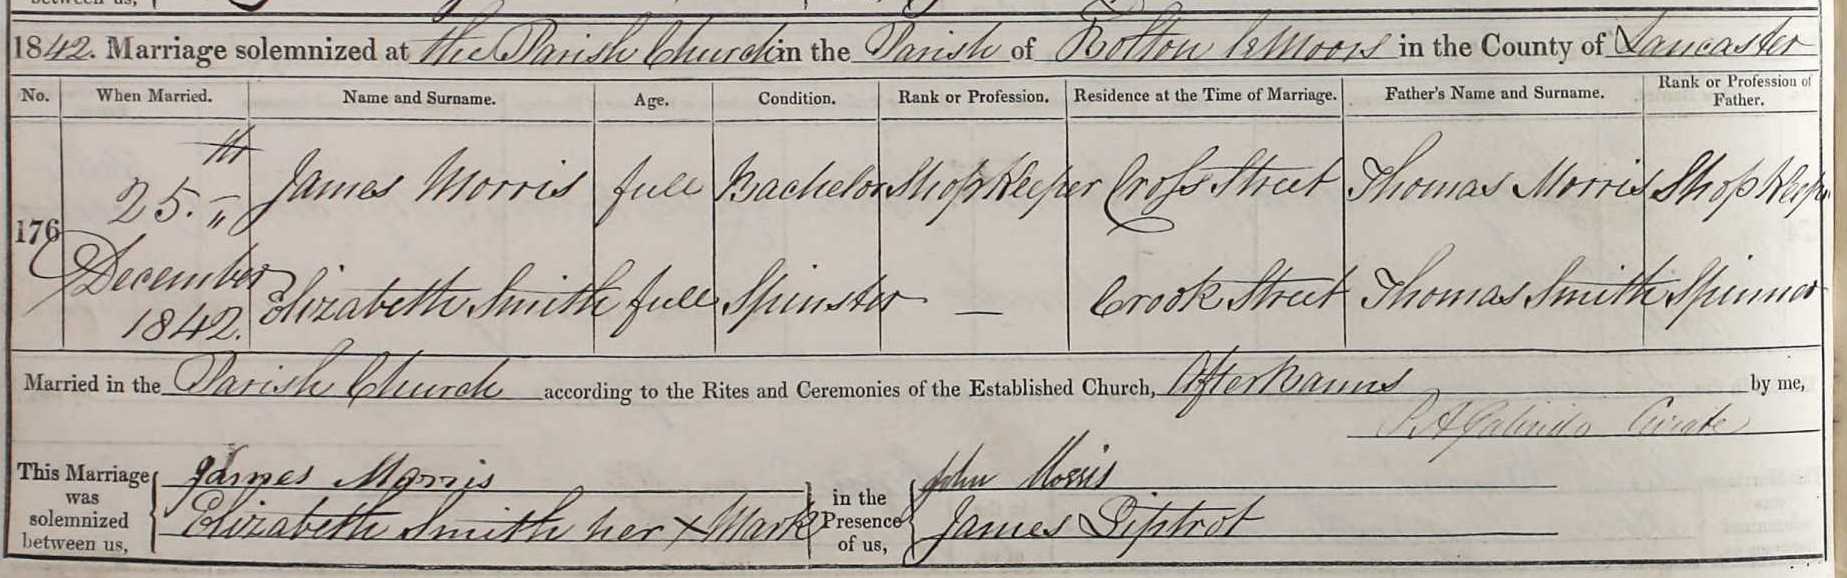 1842. Marriage solemnized at the Parish Church in the Parish of Bolton le Moors in the County of Lancaster
No. When Married. Name and Surname. Age. Condition. Rank or Profession. Residence at the Time of Marriage. Father's Name and Surname. Rank or Profession of Father.
176 25.th December 1842. James Morris full Bachelor Shop Keeper Cross Street Thomas Morris Shop Keeper
Elizabeth Smith full Spinster — Crook Street Thomas Smith Spinner
Married in the Parish Church according to the Rites and Ceremonies of the Established Church, After Banns by me,
P. A. Galindo Curate
This Marriage was solemnized between us, James Morris
Elizabeth Smith her X Mark
in the Presence of us, John Morris
James Siptrot